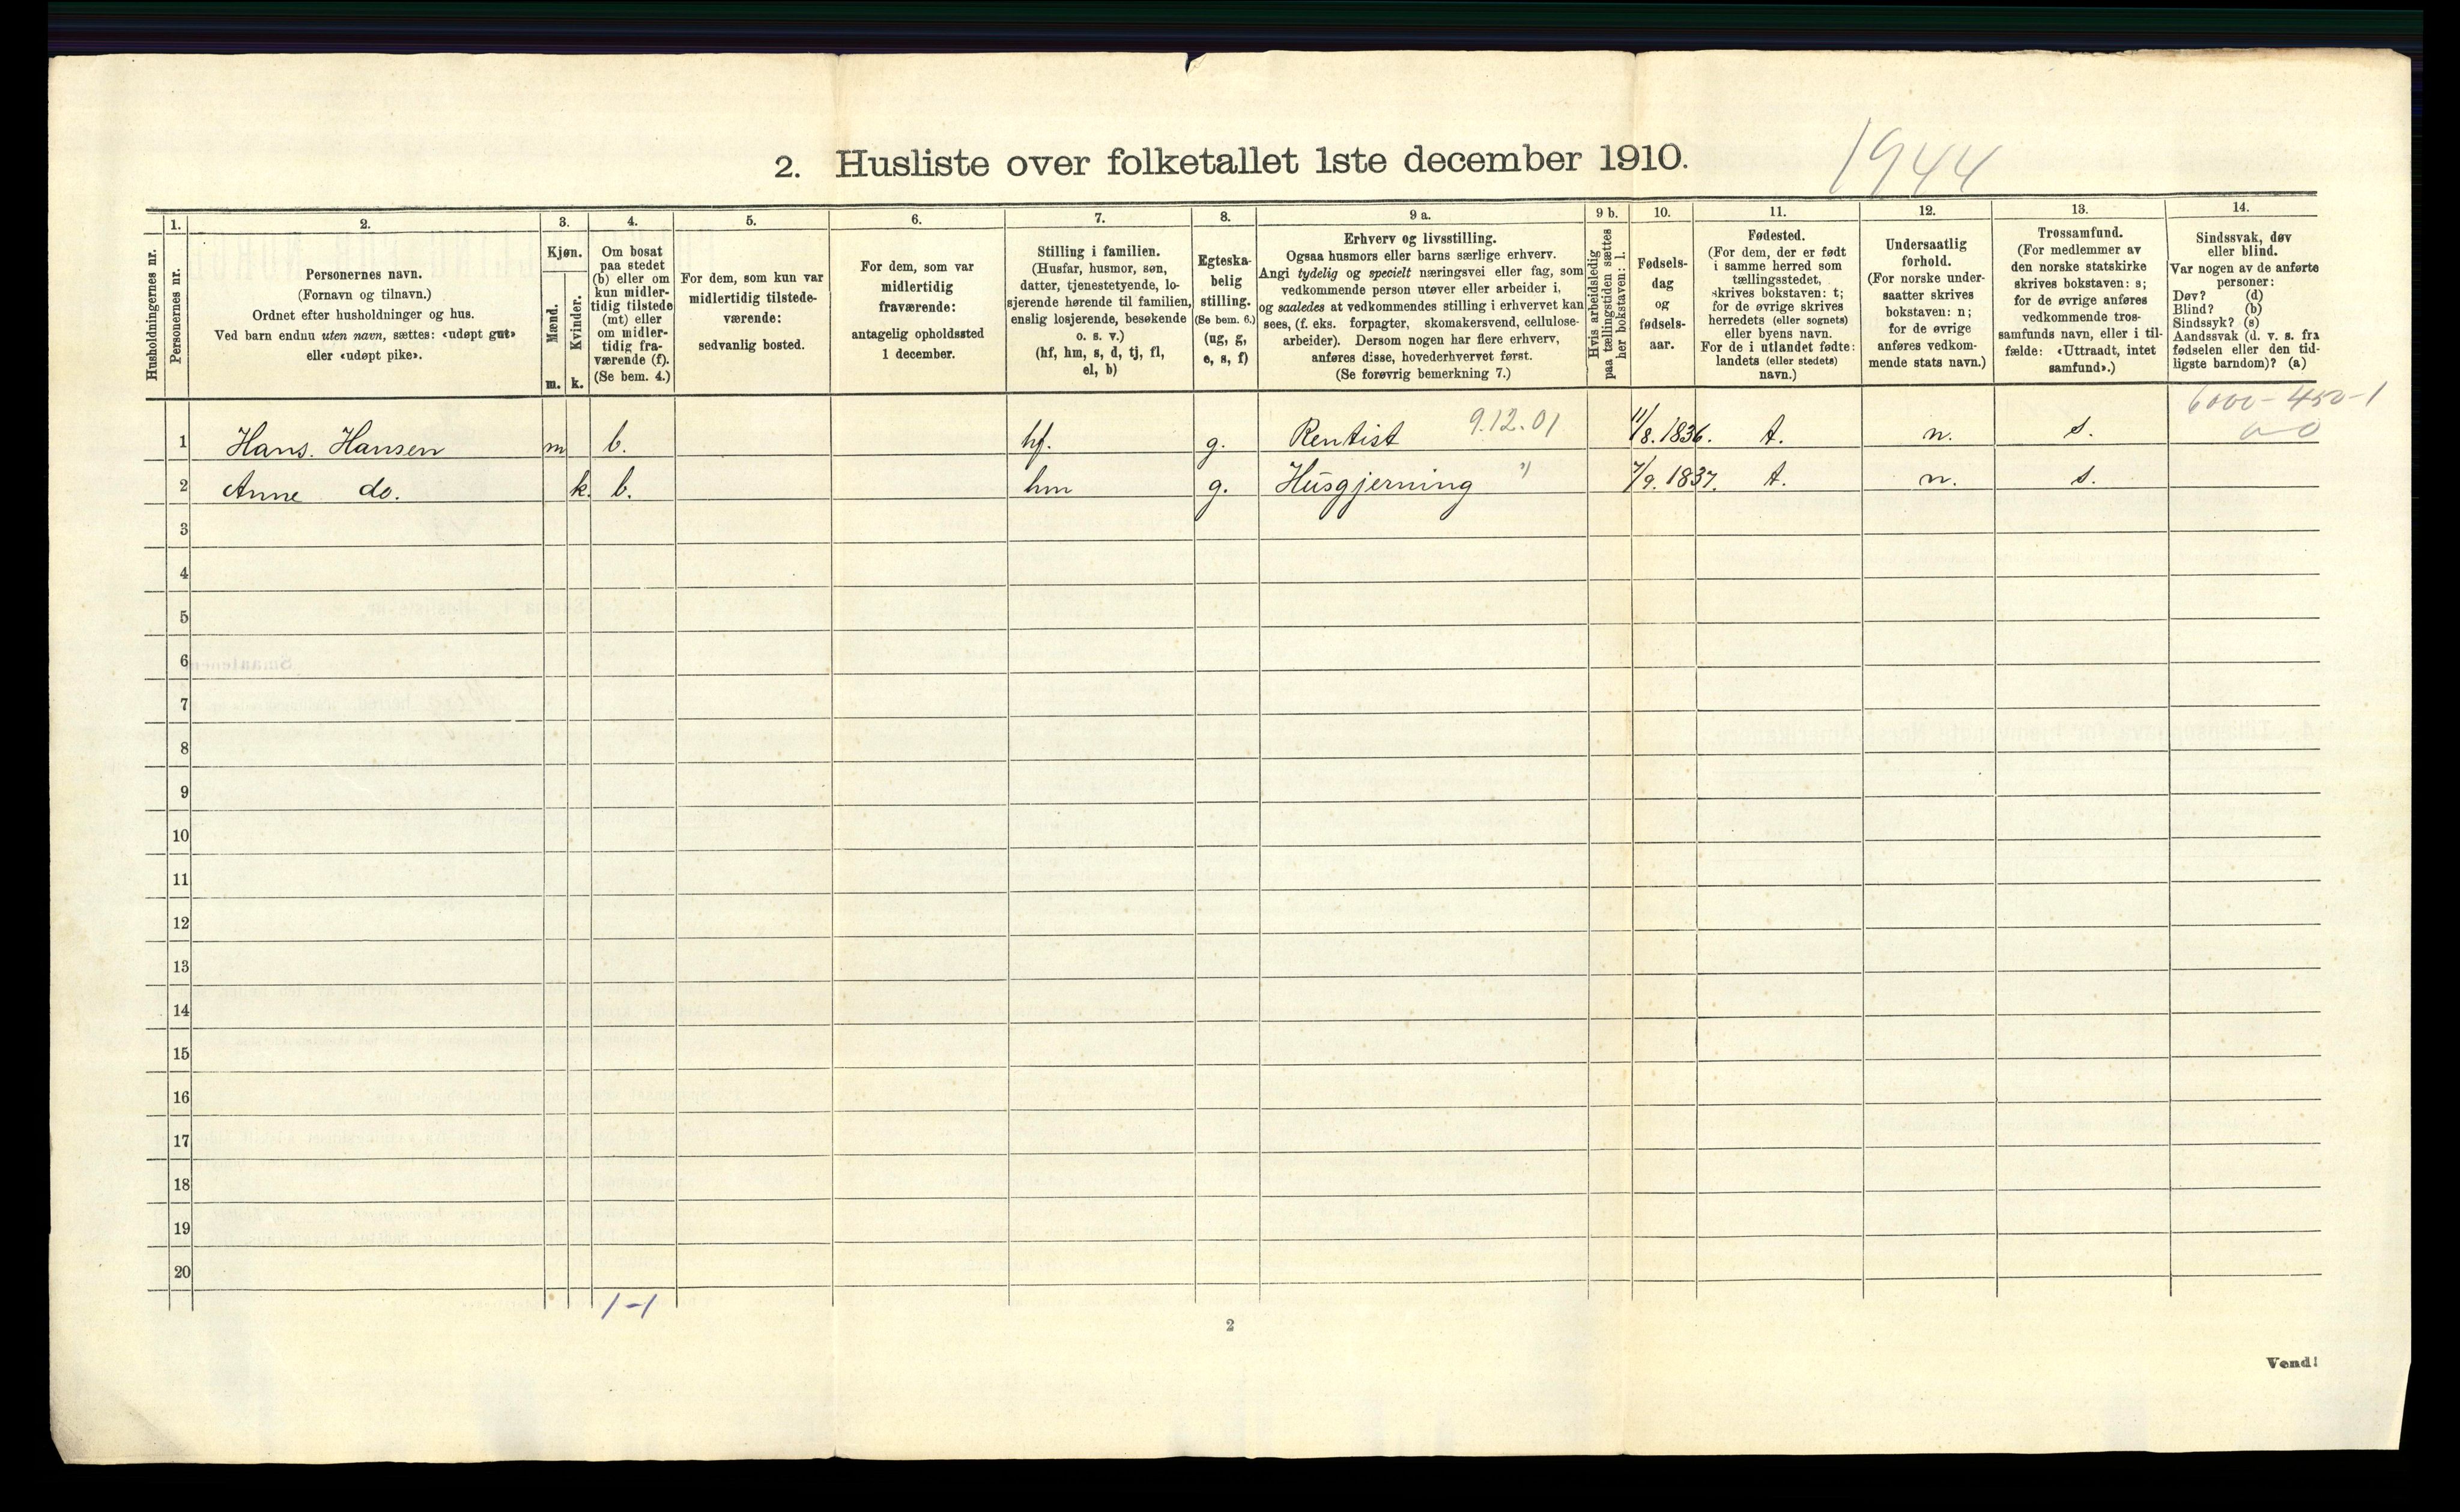 2. Husliste over folketallet 1ste december 1910.
1944
Husholdningernes nr.
1.
Personernes nr.
2.
Personernes navn.
(Fornavn og tilnavn.)
Ordnet efter husholdninger og hus.
Ved barn endnu uten navn, sættes: «udøpt gut»
eller «udøpt pike».
3.
Kjøn.
Mænd.
Kvinder.
m. k.
4.
Om bosat
paa stedet
(b) eller om
kun midler-
tidig tilstede
(mt) eller
om midler-
tidig fra-
værende (f).
(Se bem. 4.)
5.
For dem, som kun var
midlertidig tilstede-
værende:
sedvanlig bosted.
6.
For dem, som var
midlertidig
fraværende:
antagelig opholdssted
1 december.
7.
Stilling i familien.
(Husfar, husmor, søn,
datter, tjenestetyende, lo-
sjerende hørende til familien,
enslig losjerende, besøkende
o. s. v.)
(hf, hm, s, d, tj, fl,
el, b)
8.
Egteska-
belig
stilling.
(Se bem. 6.)
(ug, g,
e, s, f)
9 a.
Erhverv og livsstilling.
Ogsaa husmors eller barns særlige erhverv.
Angi tydelig og specielt næringsvei eller fag, som
vedkommende person utøver eller arbeider i,
og saaledes at vedkommendes stilling i erhvervet kan
sees, (f. eks. forpagter, skomakersvend, cellulose-
arbeider). Dersom nogen har flere erhverv,
anføres disse, hovederhvervet først.
(Se forøvrig bemerkning 7.)
9 b.
Hvis arbeidsledig
paa tællingstiden sættes
her bokstaven: l.
10.
Fødsels-
dag
og
fødsels-
aar.
11.
Fødested.
(For dem, der er født
i samme herred som
tællingsstedet,
skrives bokstaven: t;
for de øvrige skrives
herredets (eller sognets)
eller byens navn.
For de i utlandet fødte:
landets (eller stedets)
navn.)
12.
Undersaatlig
forhold.
(For norske under-
saatter skrives
bokstaven: n;
for de øvrige
anføres vedkom-
mende stats navn.)
13.
Trossamfund.
(For medlemmer av
den norske statskirke
skrives bokstaven: s;
for de øvrige anføres
vedkommende tros-
samfunds navn, eller i til-
fælde: «Uttraadt, intet
samfund».)
14.
Sindssvak, døv
eller blind.
Var nogen av de anførte
personer:
Døv? (d)
Blind? (b)
Sindssyk? (s)
Aandssvak (d. v. s. fra
fødselen eller den tid-
ligste barndom)? (a)
6000-450-1
1 Hans. Hansen m b. hf. g. Rentist 9.12.01 11/8.1836. t. n. s.
2 Anne do. k. b. hm g. Husgjerning 7/9.1837. t. n. s.
3
4
5
6
7
8
9
10
11
12
13
14
15
16
17
18
19
20
1-1
2
Vend!